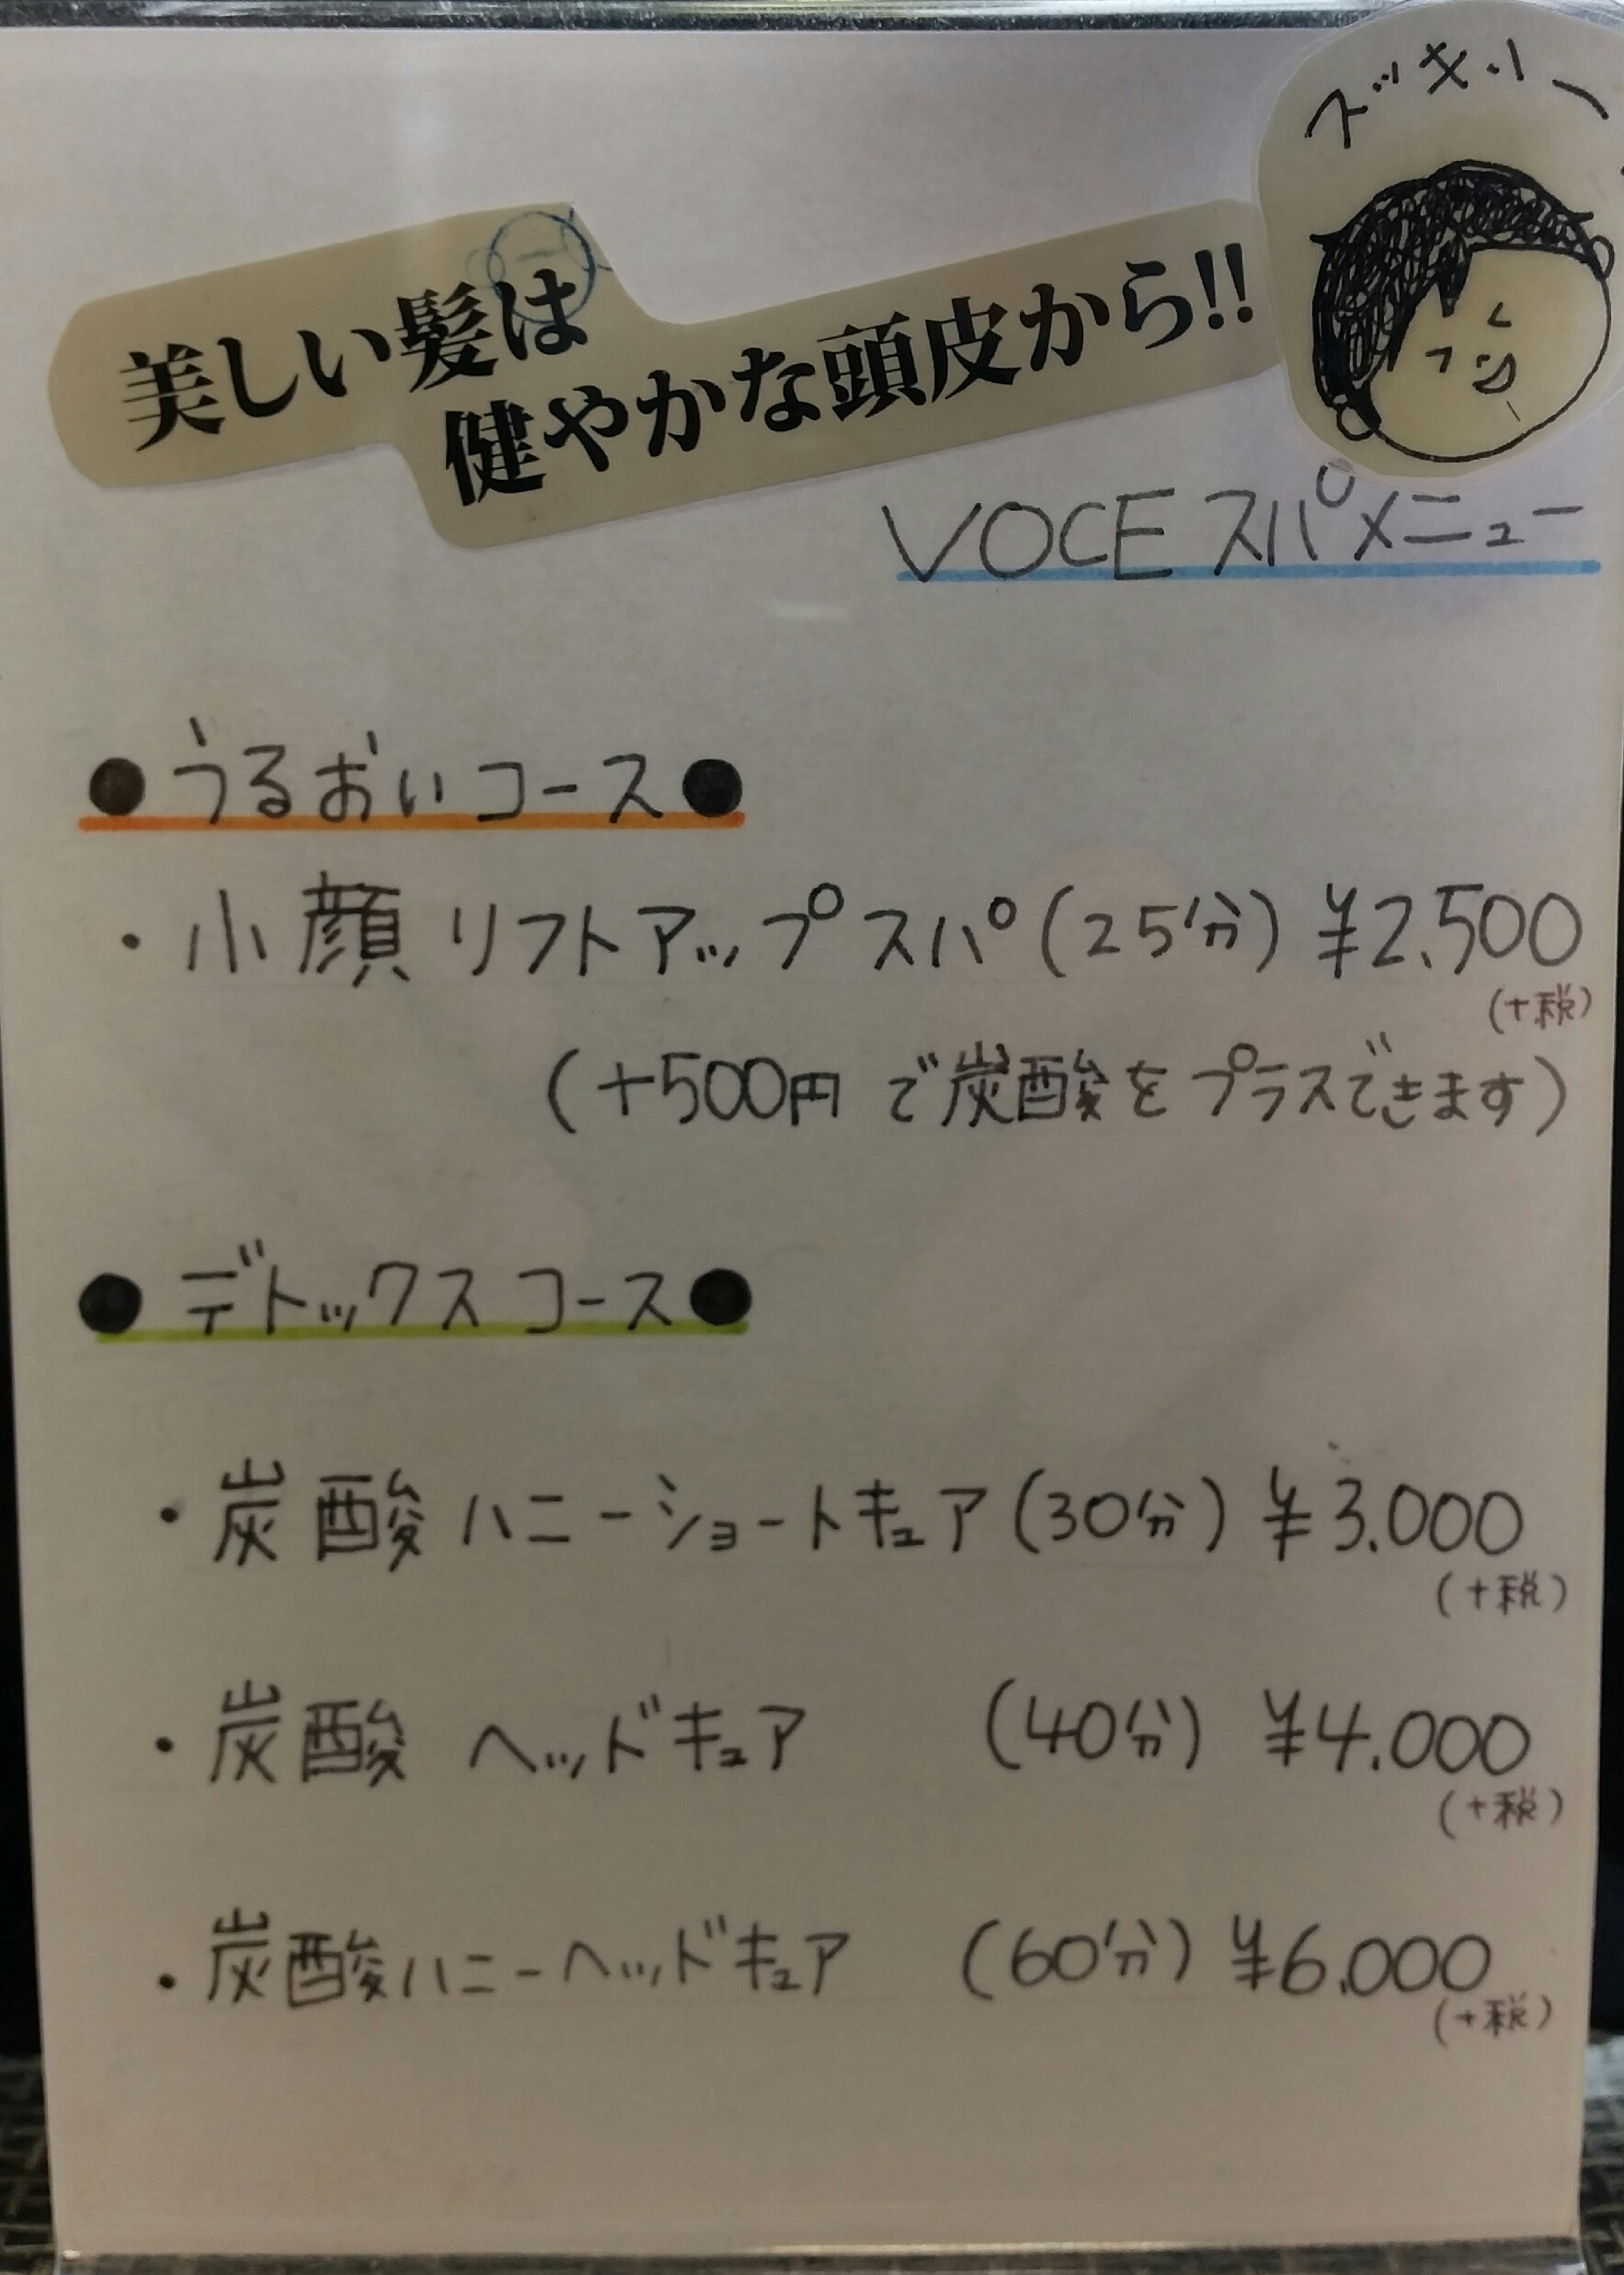 スッキリー
美しい髪は
健やかな頭皮から!!
VOCE スパメニュー
●うるおいコース●
・小顔リフトアップスパ(25分) ¥2.500
(+税)
(+500円で炭酸をプラスできます)
●デトックスコース●
・炭酸ハニーショートキュア(30分) ¥3.000
(+税)
・炭酸 ヘッドキュア (40分) ¥4.000
(+税)
・炭酸ハニーヘッドキュア (60分) ¥6.000
(+税)